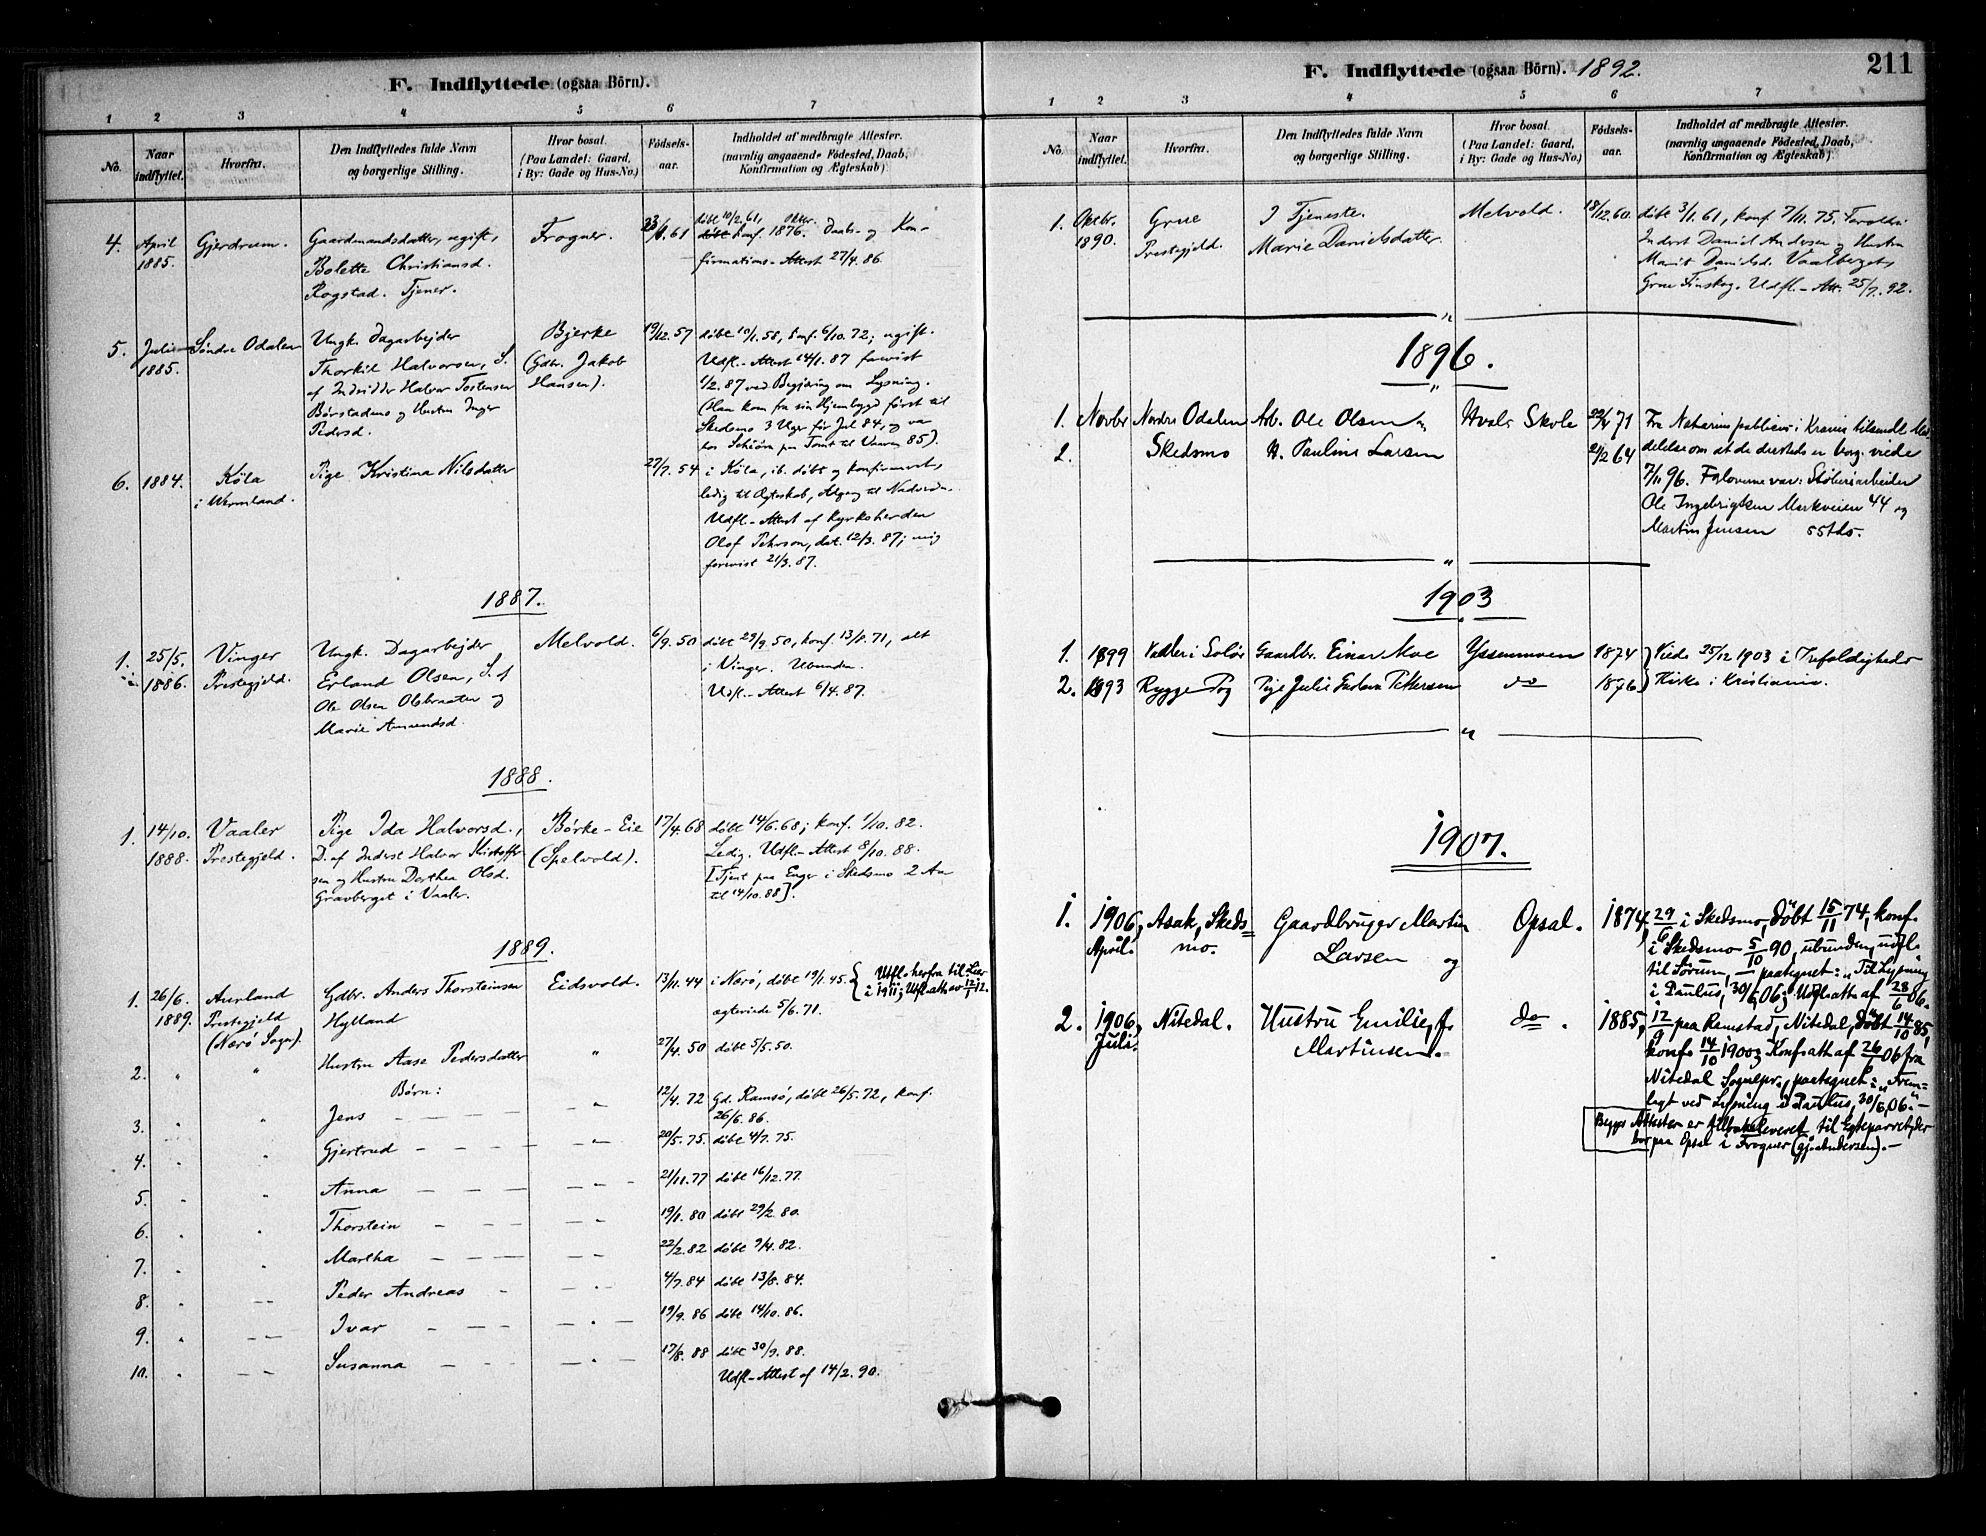 F. Indflyttede (ogsaa Börn).
1 2 3 4 5 6 7
No. Naar indflyttet. Hvorfra. Den Indflyttedes fulde Navn og borgerlige Stilling. Hvor bosat. (Paa Landet: Gaard, i By: Gade og Hus-No.) Fødsels-aar. Indholdet af medbragte Attester. (navnlig angaaende Födested, Daab, Konfirmation og Ægteskab)
4. April 1885. Gjerdrum. Gaardmandsdatter, ugift,
Bolette Christiansd.
Rogstad. Tjener.
Frogner.
døbt 10/2.61, Okter.
konf. 1876. Daabs- og Kon-
firmations-Attest 27/4.86.
5. Julie 1885. Søndre Odalen
Ungk. Dagarbejder
Thorkil Halvorsen, S.
af Indsidder Halvor Tostensen
Børstadmo og Hustru Inger
Pedersd.
Bjerke
(Gdbr. Jakob
Hansen).
19/12.57
døbt 10/1.58, konf. 6/10.72; ugift.
Udfl-Attest 14/1.87 forevist
1/2.87 ved Begjæring om Lysning.
(Han kom fra sin Hjembygd først til
Skedsmo 3 Uger før Jul 84, og var
hos Schiörn paa Tomt til Vaaren 85).
6. 1884. Köla
i Wermland.
Pige Kristina Nilsdatter
27/7.54
i Köla, ib. døbt og konfirmeret,
ledig til Ægteskab, Adgang til Nadverden.
Udfl-Attest af Kyrkoherden
Olof Pehrson, dat. 12/3.87; mig
forevist 21/3.87.
1887.
1. 25/5. 1886. Vinger
Prestegjeld.
Ungk. Dagarbejder
Erland Olsen, S. af
Ole Olsen Olsbraaten og
Marie Amundsd.
Melvold.
6/9.50
døbt 29/9.50, konf. 13/8.71, alt
i Vinger. Ubunden.
Udfl-Attest 6/4.87.
1888.
1. 14/10. 1888. Vaaler
Prestegjeld.
Pige Ida Halvorsd.,
D. af Inderst Halvor Kristoffer-
sen og Hustru Dorthea Olsd.
Gravberget i Vaaler.
Børke-Eie
(Spelvold).
17/4.68
døbt 14/6.68; konf. 1/10.82.
Ledig. Udfl-Attest 8/10.88.
[Tjent paa Enger i Skedsmo 2 Aar
til 14/10.88].
1889.
1. 26/6. 1889. Aurland
Prestegjeld
(Nærö Sogn).
Gdbr. Anders Thorsteinsen
Hylland
Eidsvold.
13/11.44
i Nærö, døbt 19/1.45.
ægteviede 5/6.71.
Utfl. herfra til Lier
i 1911; Utfl.att. av 12/1 12.
2. " " Hustru Aase Pedersdatter " 27/4.50 døbt 5/5.50.
Børn:
3. " " Jens – – – " 12/4.72 Gd. Ramsö, døbt 26/5.72, konf.
26/6.86.
4. " " Gjertrud – – – " 20/5.75. døbt 4/7.75.
5. " " Anna – – – " 21/11.77 døbt 16/12.77.
6. " " Thorstein – – – " 19/1.80 døbt 29/2.80.
7. " " Martha – – – " 22/2.82 døbt 9/4.82.
8. " – Peder Andreas – " 4/7.84 døbt 13/8.84.
9. " – Ivar – – – " 19/9.86 døbt 14/10.86.
10. " – Susanna – – " 17/8.88 døbt 30/9.88.
Udfl-Attest af 14/2.90.
F. Indflyttede (ogsaa Börn). 1892.
211
1 2 3 4 5 6 7
No. Naar indflyttet. Hvorfra. Den Indflyttedes fulde Navn og borgerlige Stilling. Hvor bosat. (Paa Landet: Gaard, i By: Gade og Hus-No.) Fødsels-aar. Indholdet af medbragte Attester. (navnlig angaaende Födested, Daab, Konfirmation og Ægteskab)
1. Oktbr. 1890. Grue
Prestegjeld.
I Tjeneste.
Marie Danielsdatter.
Melvold.
18/12.60.
døbt 3/1.61, konf. 7/11.75, Forældre:
Inderst Daniel Andersen og Hustru
Marit Danielsd. Vaalberget,
Grue Finskog. Udfl-Att. 25/7.92.
1896.
1. Novbr Nordre Odalen Arb. Ole Olsen Hvals Skole 22/4 71
2. Skedsmo H. Pauline Larsen 21/2 64
Fra Notarius publicus i Krania tilsendt Med-
delelse om at de dersteds er borg. viede
7/11 96. Forloverne var: Støberiarbeider
Ole Ingebrigtsen Markveien 44 og
Martin Jensen ssteds.
1903
1. 1899 Vaaler i Solör Gaardbr. Einar Moe Yssenmoen 1874
2. 1893 Rygge Pg Pige Julie Gustava Pettersen do 1876
Viede 25/12 1903 i Trefoldigheds
Kirke i Kristiania.
1907.
1. 1906, April. Asak, Skeds-
mo.
Gaardbruger Martin
Larsen og
Opsal.
1874,
29/6 i Skedsmo, døbt 15/11 74, konf.
i Skedsmo 5/10 90, ubunden, udfl.
til Sörum, – paategnet: „Til Lysning
i Paulus, 30/6 06; Udfl.att. af 28/6 06.
2. 1906, Juli. Nitedal. Hustru Emilie, f.
Martinsen.
do.
1885,
12/9 paa Ramstad, Nitedal, døbt 14/10 85,
konf. 14/10 1900; Konf.att. af 26/1 06 fra
Nitedal Sognepr., paategnet: „Frem-
lagt ved Lysning i Paulus, 30/6 06." –
Begges Attester er tilbakeleveret til Egteparret, der
bor paa Opsal i Frogner (Gj. Andersen). –